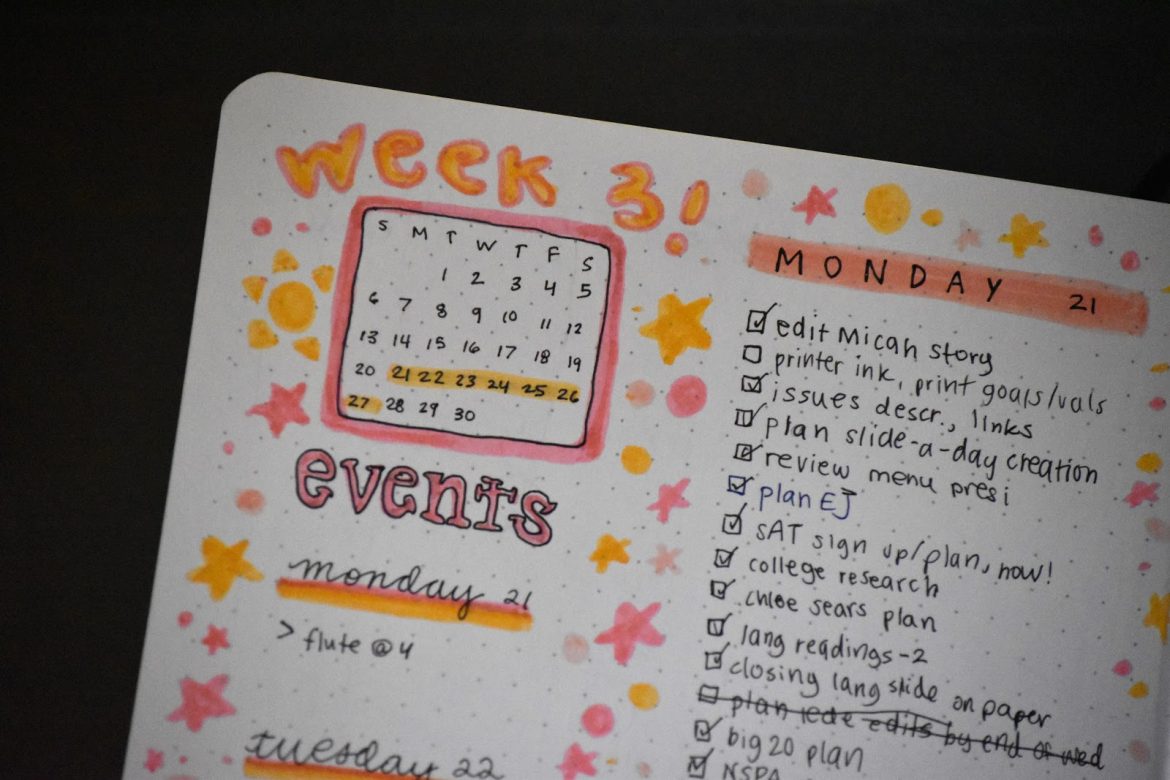 week 3!
S M T W T F S
1 2 3 4 5
6 7 8 9 10 11 12
13 14 15 16 17 18 19
20 21 22 23 24 25 26
27 28 29 30
events
monday 21
> flute @ 4
tuesday 22
MONDAY 21
edit Micah story
printer ink, print goals/vals
issues descr., links
plan slide-a-day creation
review menu presi
plan EJ
SAT sign up/plan, now!
college research
chloe sears plan
lang readings-2
closing lang slide on paper
plan lede edits by end of wed
big 20 plan
NSPA